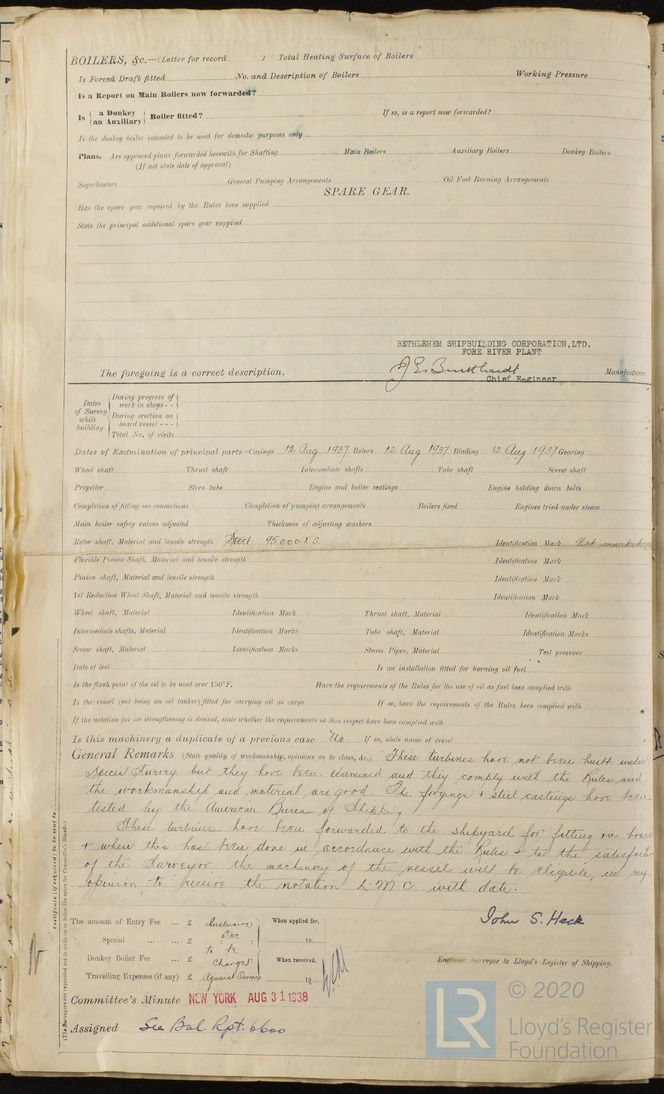 BOILERS, &c.—(Letter for record ) Total Heating Surface of Boilers
Is Forced Draft fitted No. and Description of Boilers Working Pressure
Is a Report on Main Boilers now forwarded?
Is { a Donkey / an Auxiliary } Boiler fitted? If so, is a report now forwarded?
Is the donkey boiler intended to be used for domestic purposes only
Plans. Are approved plans forwarded herewith for Shafting Main Boilers Auxiliary Boilers Donkey Boilers
(If not state date of approval)
Superheaters General Pumping Arrangements Oil Fuel Burning Arrangements
SPARE GEAR.
Has the spare gear required by the Rules been supplied
State the principal additional spare gear supplied
BETHLEHEM SHIPBUILDING CORPORATION, LTD.
FORE RIVER PLANT
The foregoing is a correct description, J E Burkhardt Manufacturer.
Chief Engineer
Dates of Survey while building
During progress of work in shops - -
During erection on board vessel - - -
Total No. of visits
Dates of Examination of principal parts—Casings 12 Aug 1937 Rotors 12 Aug 1937 Blading 12 Aug 1937 Gearing
Wheel shaft Thrust shaft Intermediate shafts Tube shaft Screw shaft
Propeller Stern tube Engine and boiler seatings Engine holding down bolts
Completion of fitting sea connections Completion of pumping arrangements Boilers fixed Engines tried under steam
Main boiler safety valves adjusted Thickness of adjusting washers
Rotor shaft, Material and tensile strength Steel 95000 T.S. Identification Mark Not marked
Flexible Pinion Shaft, Material and tensile strength Identification Mark
Pinion shaft, Material and tensile strength Identification Mark
1st Reduction Wheel Shaft, Material and tensile strength Identification Mark
Wheel shaft, Material Identification Mark Thrust shaft, Material Identification Mark
Intermediate shafts, Material Identification Marks Tube shaft, Material Identification Marks
Screw shaft, Material Identification Marks Steam Pipes, Material Test pressure
Date of test Is an installation fitted for burning oil fuel
Is the flash point of the oil to be used over 150°F. Have the requirements of the Rules for the use of oil as fuel been complied with
Is the vessel (not being an oil tanker) fitted for carrying oil as cargo If so, have the requirements of the Rules been complied with
If the notation for ice strengthening is desired, state whether the requirements in this respect have been complied with
Is this machinery a duplicate of a previous case No If so, state name of vessel
General Remarks (State quality of workmanship, opinions as to class, &c.) These turbines have not been built under
Special Survey but they have been examined and they comply with the Rules and
the workmanship and material are good. The forgings & steel castings have been
tested by the American Bureau of Shipping.
These turbines have been forwarded to the shipyard for fitting on board
& when this has been done in accordance with the Rules & to the satisfaction
of the Surveyor the machinery of the vessel will be eligible, in my
opinion to receive the notation LMC with date.
Certificate (if required) to be sent to
(The Surveyors are requested not to write on or below the space for Committee's Minute.)
The amount of Entry Fee ... £ Inclusive When applied for.
Special ... ... £ Fee 19
to be
Donkey Boiler Fee ... £ Charged When received.
Travelling Expenses (if any) £ Against Owners 19
John S. Heck
Engineer Surveyor to Lloyd's Register of Shipping.
Committee's Minute NEW YORK AUG 31 1938
Assigned See Bal. Rpt. 6600
LR
© 2020
Lloyd's Register
Foundation